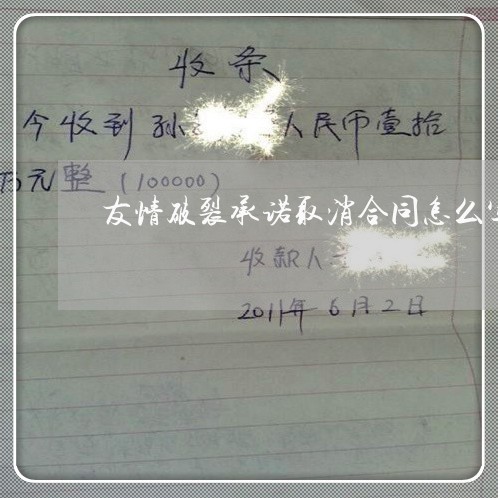 收条
今收到孙 人民币壹拾
万元整(100000)
友情破裂承诺取消合同怎么
收款人
2011年6月2日